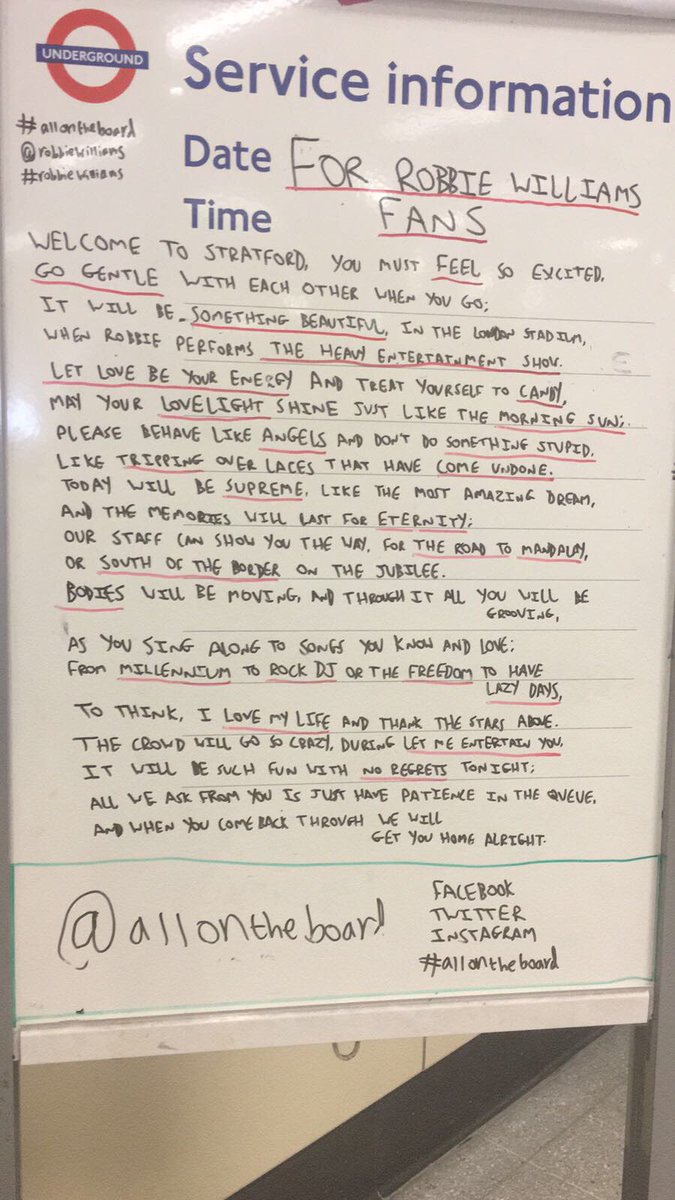 UNDERGROUND
Service information
#allontheboard
@robbiewilliams
#robbiewilliams
Date FOR ROBBIE WILLIAMS
Time FANS
WELCOME TO STRATFORD, YOU MUST FEEL SO EXCITED,
GO GENTLE WITH EACH OTHER WHEN YOU GO;
IT WILL BE SOMETHING BEAUTIFUL, IN THE LONDON STADIUM,
WHEN ROBBIE PERFORMS THE HEAVY ENTERTAINMENT SHOW.
LET LOVE BE YOUR ENERGY AND TREAT YOURSELF TO CANDY,
MAY YOUR LOVELIGHT SHINE JUST LIKE THE MORNING SUN;
PLEASE BEHAVE LIKE ANGELS AND DON'T DO SOMETHING STUPID,
LIKE TRIPPING OVER LACES THAT HAVE COME UNDONE.
TODAY WILL BE SUPREME, LIKE THE MOST AMAZING DREAM,
AND THE MEMORIES WILL LAST FOR ETERNITY;
OUR STAFF CAN SHOW YOU THE WAY, FOR THE ROAD TO MANDALAY,
OR SOUTH OF THE BORDER ON THE JUBILEE.
BODIES WILL BE MOVING, AND THROUGH IT ALL YOU WILL BE
GROOVING,
AS YOU SING ALONG TO SONGS YOU KNOW AND LOVE;
FROM MILLENNIUM TO ROCK DJ OR THE FREEDOM TO HAVE
LAZY DAYS,
TO THINK, I LOVE MY LIFE AND THANK THE STARS ABOVE.
THE CROWD WILL GO SO CRAZY, DURING LET ME ENTERTAIN YOU,
IT WILL BE SUCH FUN WITH NO REGRETS TONIGHT;
ALL WE ASK FROM YOU IS JUST HAVE PATIENCE IN THE QUEUE,
AND WHEN YOU COME BACK THROUGH WE WILL
GET YOU HOME ALRIGHT.
@allontheboard
FACEBOOK
TWITTER
INSTAGRAM
#allontheboard